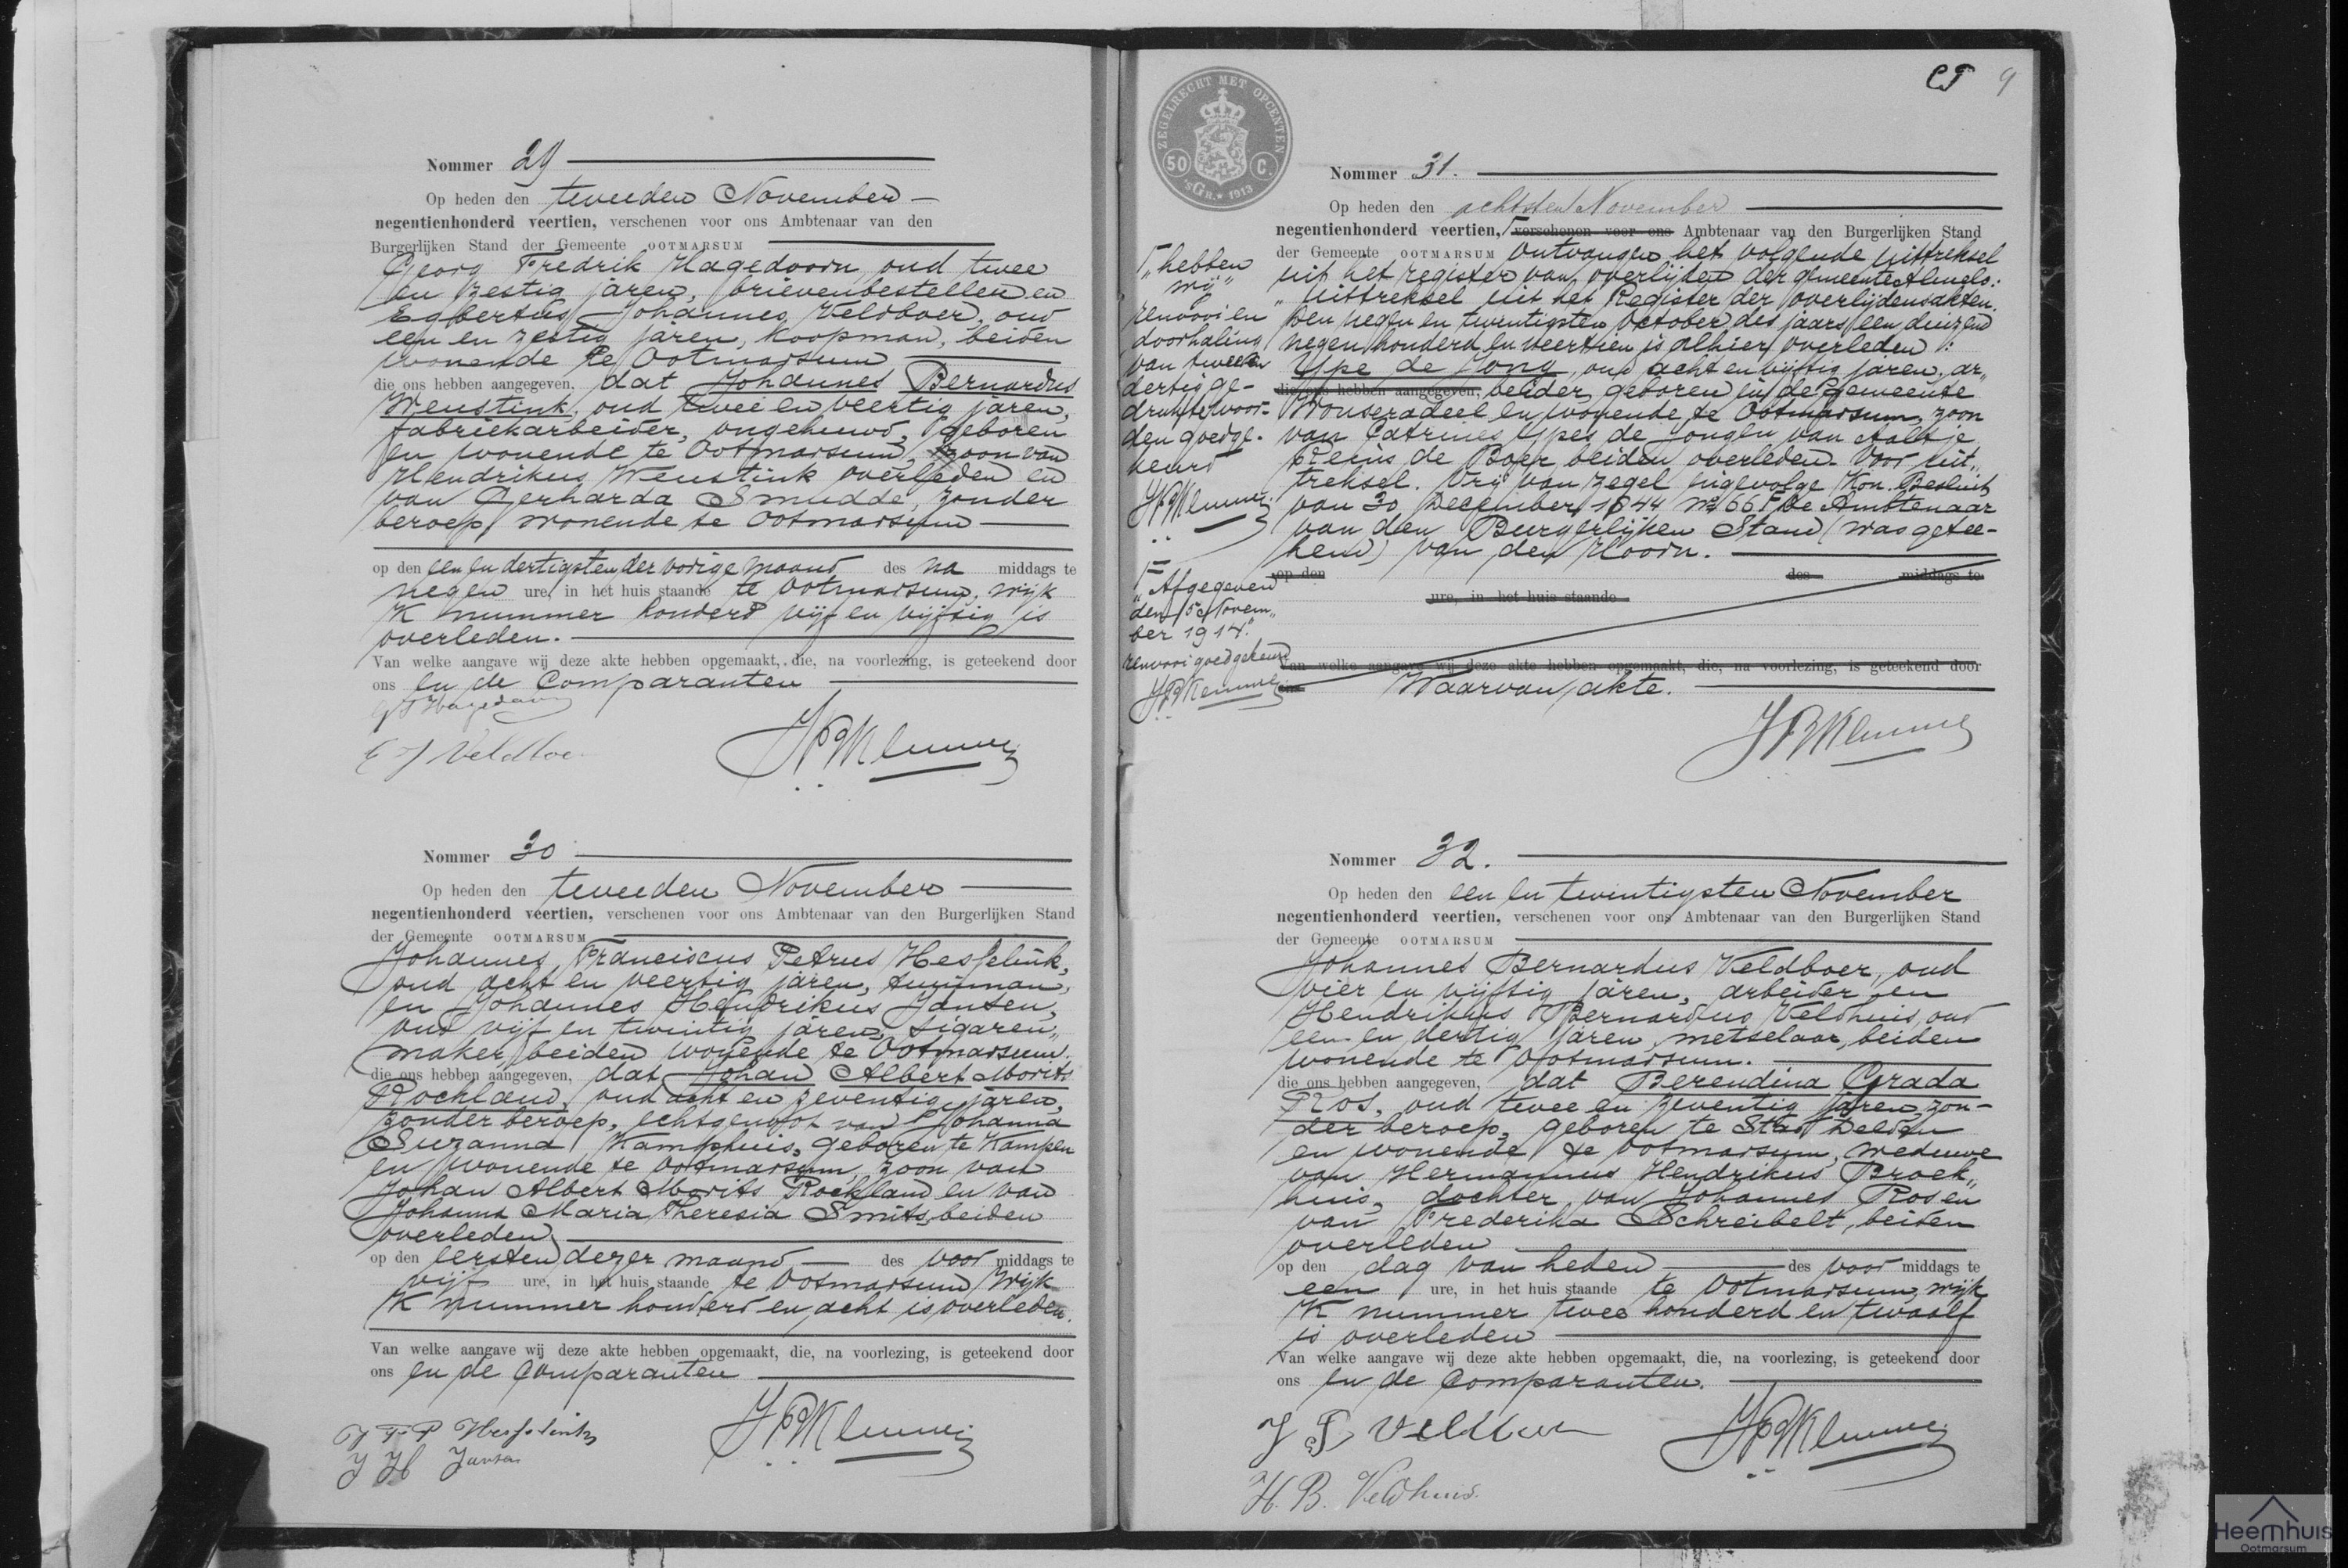 Nommer 29
Op heden den tweeden November
negentienhonderd veertien, verschenen voor ons Ambtenaar van den
Burgerlijken Stand der Gemeente OOTMARSUM
Georg Fredrik Hagedoorn, oud twee
en zestig jaren, brievenbesteller en
Egbertus Johannes Veldboer, oud
een en zestig jaren, koopman, beiden
wonende te Ootmarsum
die ons hebben aangegeven, dat Johannes Bernardus
Weustink, oud twee en veertig jaren,
fabriekarbeider, ongehuwd, geboren
en wonende te Ootmarsum, zoon van
Hendrikus Weustink overleden en
van Gerharda Smudde, zonder
beroep, wonende te Ootmarsum
op den een en dertigsten der vorige maand des na middags te
negen ure, in het huis staande te Ootmarsum, wijk
K nummer honderd vijf en vijftig is
overleden.
Van welke aangave wij deze akte hebben opgemaakt, die, na voorlezing, is geteekend door
ons en de Comparanten
G F Hagedoorn
E J Veldboe
Nommer 30
Op heden den tweeden November
negentienhonderd veertien, verschenen voor ons Ambtenaar van den Burgerlijken Stand
der Gemeente OOTMARSUM
Johannes Franciscus Petrus Hesselink,
oud acht en veertig jaren, tuinman,
en Johannes Hendrikus Jansen,
oud vijf en twintig jaren, sigaren„
maker, beiden wonende te Ootmarsum,
die ons hebben aangegeven, dat Johan Albert Morits
Rockland, oud acht en zeventig jaren,
zonder beroep, echtgenoot van Johanna
Suzanna Kamphuis, geboren te Kampen
en wonende te Ootmarsum, zoon van
Johan Albert Morits Rockland en van
Johanna Maria Theresia Smits, beiden
overleden,
op den eersten dezer maand des voor middags te
vijf ure, in het huis staande te Ootmarsum Wijk
K nummer honderd en acht is overleden.
Van welke aangave wij deze akte hebben opgemaakt, die, na voorlezing, is geteekend door
ons en de Comparanten
J F P Hesselink
J H Jansen
9
ZEGELRECHT MET OPCENTEN
50 C.
'sGR. 1913
Nommer 31.
Op heden den achtsten November
negentienhonderd veertien, verschenen voor ons Ambtenaar van den Burgerlijken Stand
der Gemeente OOTMARSUM ontvangen het volgende uittreksel
uit het register van overlijden der gemeente Almelo:
„Uittreksel uit het Register der overlijdensakten.
Den negen en twintigsten October des jaars een duizend
negen honderd en veertien is alhier overleden:
Ype de Jong, oud acht en vijftig jaren, ar„
die ons hebben aangegeven, beider, geboren in de Gemeente
Wonseradeel en wonende te Ootmarsum, zoon
van Catrinus Ypes de Jong en van Aaltje
Reins de Boer beiden overleden. Voor uit„
treksel. Vrij van zegel ingevolge Kon. Besluit
van 30 December 1844 no 66 De Ambtenaar
van den Burgerlijken Stand (was getee-
kend) van der Hoorn.
op den des middags te
ure, in het huis staande
Van welke aangave wij deze akte hebben opgemaakt, die, na voorlezing, is geteekend door
ons Waarvan akte.
„hebben
wij"
renvooi en
doorhaling
van twee en
dertig ge-
drukte woor-
den goedge-
keurd
„Afgegeven
den 5e Novem„
ber 1914."
renvooi goedgekeurd
Nommer 32.
Op heden den een en twintigsten November
negentienhonderd veertien, verschenen voor ons Ambtenaar van den Burgerlijken Stand
der Gemeente OOTMARSUM
Johannes Bernardus Veldboer, oud
vier en vijftig jaren, arbeider en
Hendrikus Bernardus Veldhuis, oud
een en dertig jaren, metselaar, beiden
wonende te Ootmarsum.
die ons hebben aangegeven, dat Berendina Grada
Ros, oud twee en zeventig jaren, zon-
der beroep, geboren te Stad Delden
en wonende te Ootmarsum, weduwe
van Hermannus Hendrikus Broek„
huis, dochter van Johannes Ros en
van Frederika Schreibelt, beiden
overleden
op den dag van heden des voor middags te
een ure, in het huis staande te Ootmarsum, wijk
K nummer twee honderd en twaalf
is overleden
Van welke aangave wij deze akte hebben opgemaakt, die, na voorlezing, is geteekend door
ons en de Comparanten.
H. B. Veldhuis.
Heemhuis
Ootmarsum